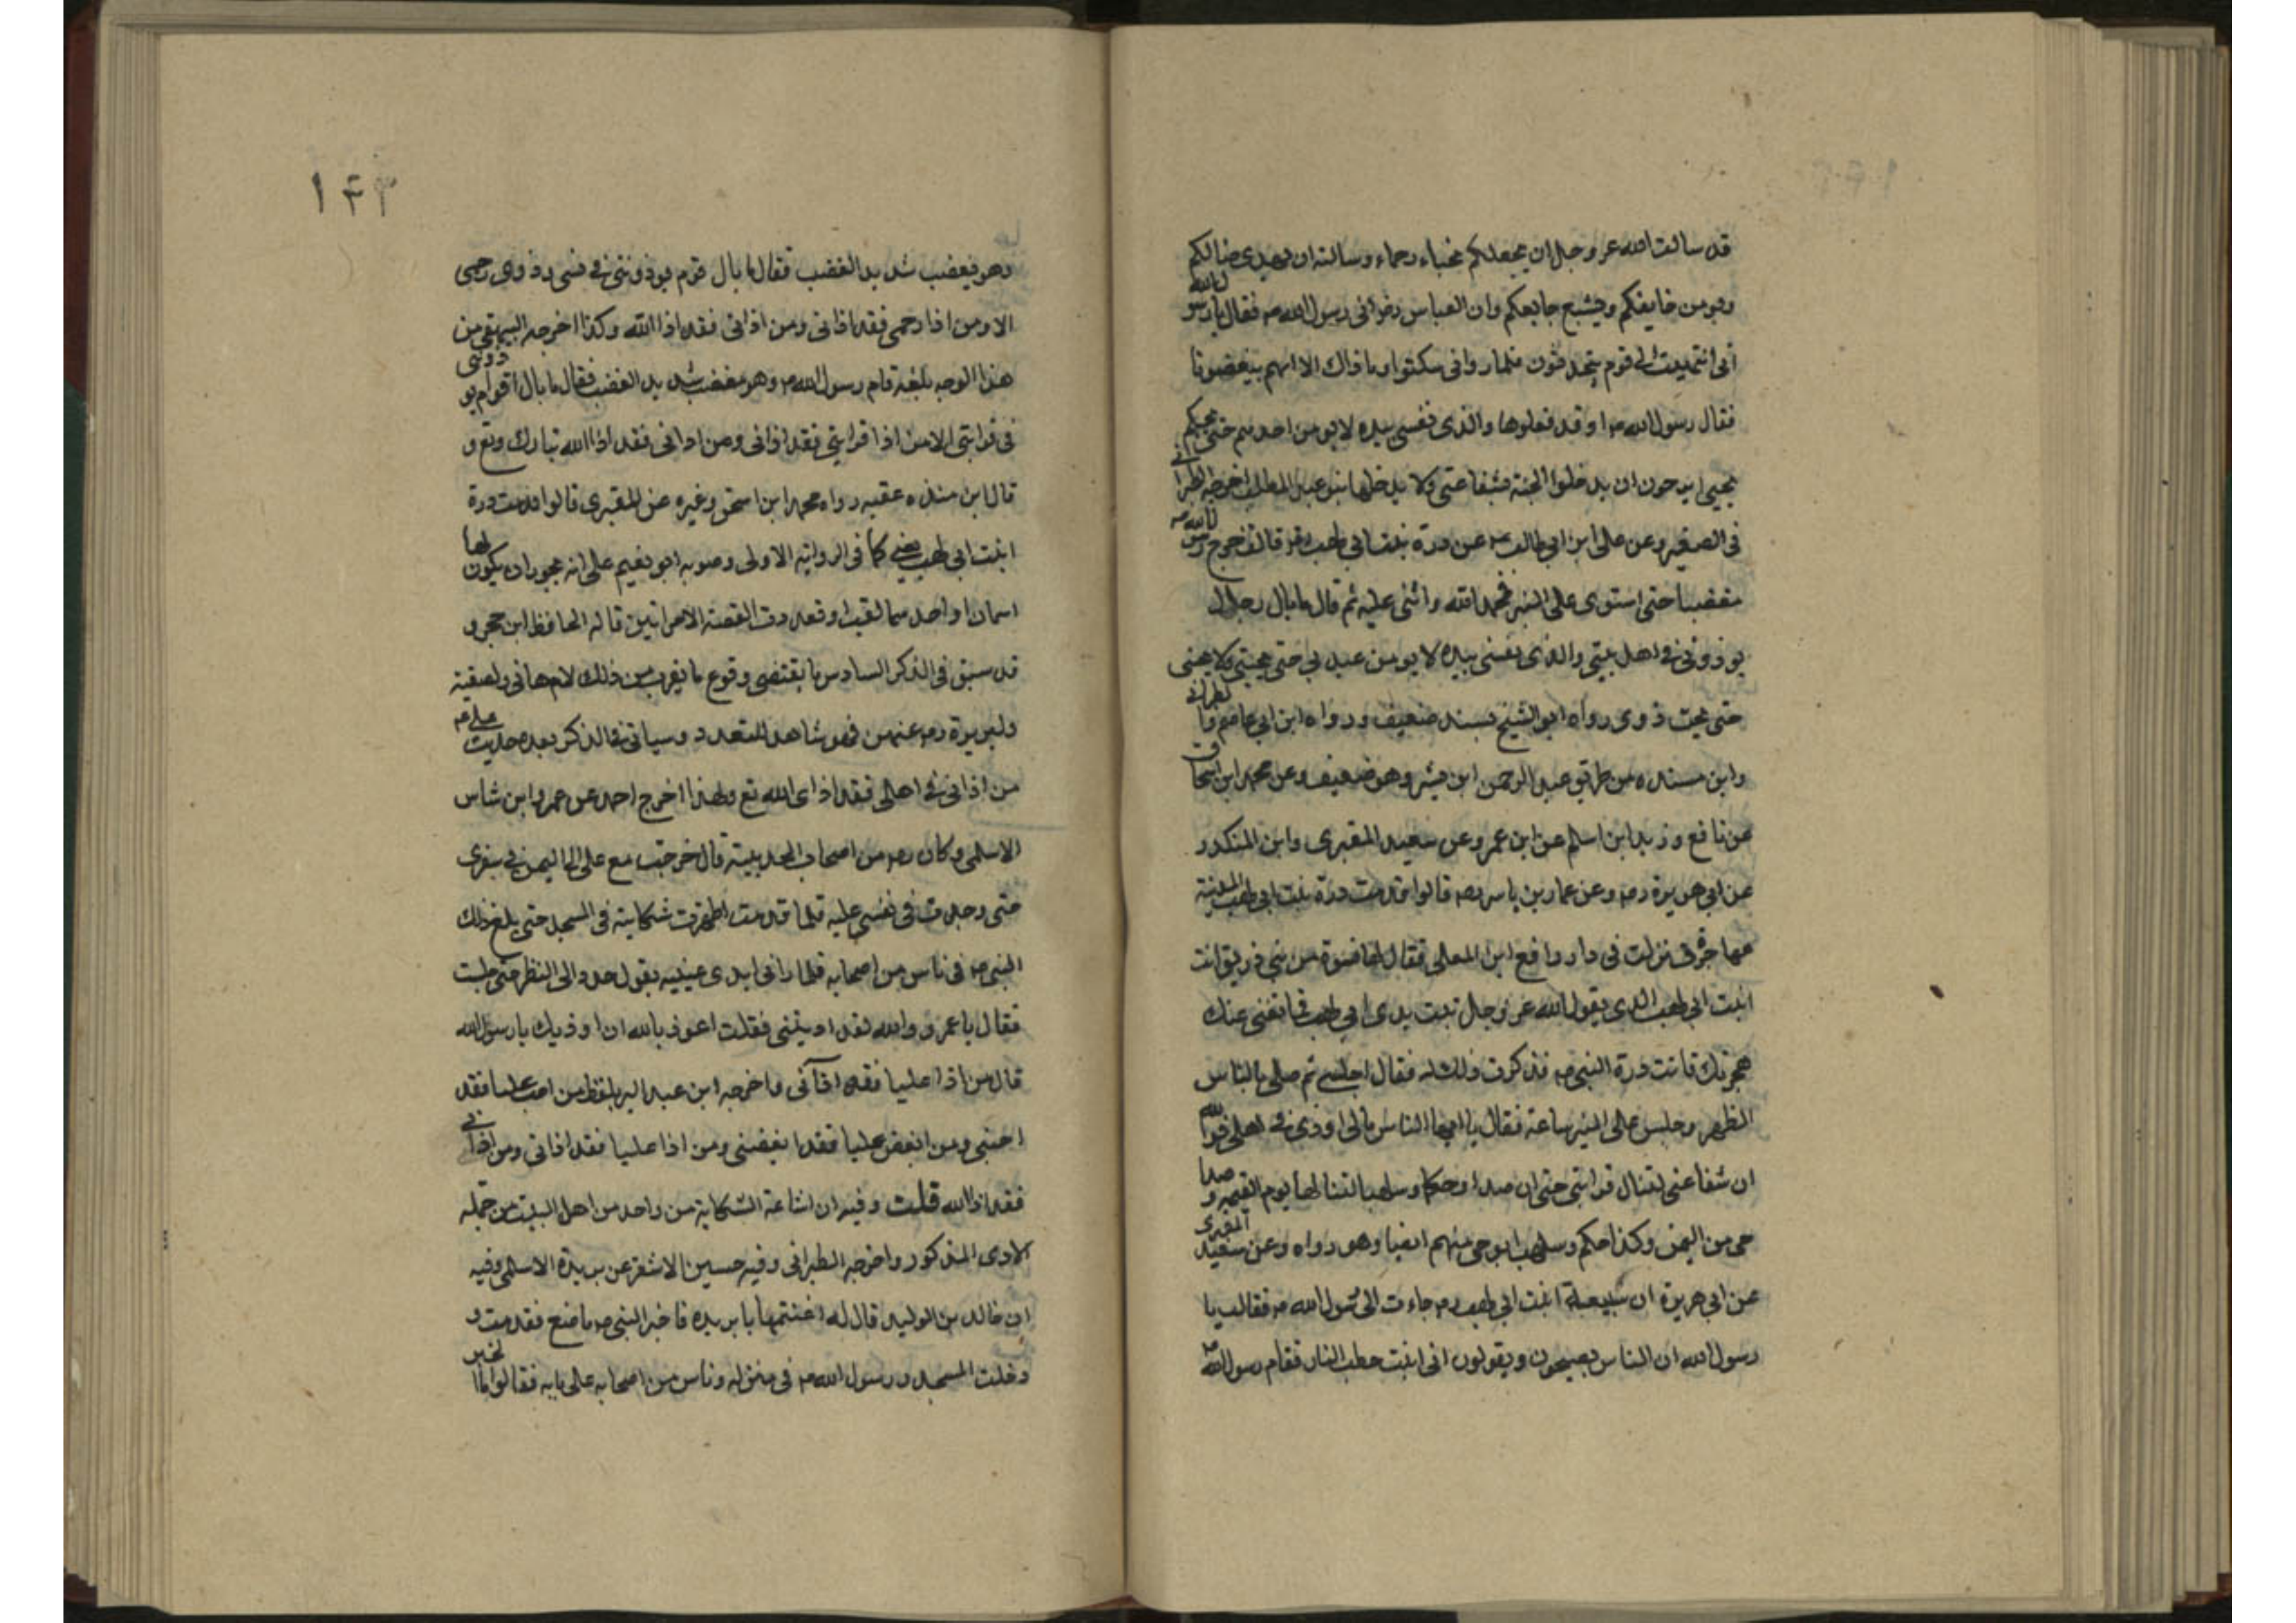 قد سالت الله عز وجل ان يجعلكم نجباء رحماء وسالته ان يهدى ضالكم
ويومن خايفكم ويشبع جايعكم وان العباس رض اتى رسول الله صم فقال يا رسول الله
انى انتهيت الى قوم يتحدثون فلما راونى سكتوا وما ذاك الا انهم يبغضونا
فقال رسول الله صم او قد فعلوها والذى نفسى بيده لا يومن احدهم حتى يحبكم
بحبى ايرجون ان يدخلوا الجنة بشفاعتى ولا يدخلها بنو عبد المطلب اخرجه الطبرانى
فى الصغير وعن على ابن ابى طالب عن درة بنت ابى لهب رض قالت خرج رسول الله صم
مغضبا حتى استوى على المنبر فحمد الله واثنى عليه ثم قال ما بال رجال
يوذونى فى اهل بيتى والذى نفسى بيده لا يومن عبد بى حتى يحبنى ولا يحبنى
حتى يحب ذوى رواه ابو الشيخ بسند ضعيف ورواه ابن ابى عاصم والطبرانى
وابن منده من طريق عبد الرحمن ابن بشر وهو ضعيف وعن محمد ابن اسحاق
عن نافع وزيد ابن اسلم عن ابن عمر وعن سعيد المقبرى وابن المنكدر
عن ابى هريرة رض وعن عمار بن ياسر رض قالوا قدمت درة بنت ابى لهب المدينة
مهاجرة فنزلت فى دار رافع ابن المعلى فقال لها نسوة من بنى زريق انت
ابنت ابى لهب الذى يقول الله عز وجل تبت يدى ابى لهب فما تغنى عنك
هجرتك فاتت درة النبى صم فذكرت ذلك له فقال اجلسى ثم صلى بالناس
الظهر وجلس على المنبر ساعة فقال يا ايها الناس مالى اوذى فى اهلى فوالله
ان شفاعتى لتنال قرابتى حتى ان صدا وحكما وسلهبا لتنالها يوم القيمة وصدا
حى من اليمن وكذا حكم وسلهب ابو حى منهم ايضا وهو رواه وعن سعيد المقبرى
عن ابى هريرة ان سبيعة ابنت ابى لهب رض جاءت الى رسول الله صم فقالت يا
رسول الله ان الناس يصيحون ويقولون انى ابنت حطب النار فقام رسول الله صم
١٤٣
وهو يغضب شديد الغضب فقال ما بال قوم يوذوننى فى نسبى وذوى رحمى
الا ومن اذا رحمى فقد اذانى ومن اذانى فقد اذا الله وكذا اخرجه البيهقى من
هذا الوجه بلفظ قام رسول الله صم وهو مغضب شديد الغضب فقال ما بال اقوام يوذونى
فى قرابتى الا من اذا قرابتى فقد اذانى ومن اذانى فقد اذا الله تبارك وتع و
قال ابن منده عقبه رواه محمد ابن اسحق وغيره عن المقبرى قالوا قدمت درة
ابنت ابى لهب يعنى كما فى الرواية الاولى وصوبه ابو نعيم على انه يجوز ان يكون لها
اسمان او احدهما لقب او تعددت القصة لامراتين قاله الحافظ ابن حجر و
قد سبق فى الذكر السادس ما يقتضى وقوع ما يقرب من ذلك لام هانى ولصفية
ولبريرة رض عنهن فهو شاهد للتعدد وسياتى فى الذكر بعده حديث
من اذانى فى اهلى فقد اذى الله تع ولهذا اخرج احمد عن عمرو ابن شاس
الاسلمى وكان رض من اصحاب الحديبية قال خرجت مع على الى اليمن فى سفرى
حتى وجدت فى نفسى عليه فلما قدمت اظهرت شكايته فى المسجد حتى بلغ ذلك
النبى صم فى ناس من اصحابه فلما رانى ابدى عينيه يقول حدد الى النظر حتى جلست
فقال يا عمرو والله لقد اذيتنى فقلت اعوذ بالله ان اوذيك يا رسول الله
قال من اذا عليا فقد اذانى واخرجه ابن عبد البر بلفظ من احب عليا فقد
احبنى ومن ابغض عليا فقد ابغضنى ومن اذا عليا فقد اذانى ومن اذانى
فقد اذا الله قلت وفيه ان اشاعة الشكاية من واحد من اهل البيت من جملة
الاذى المذكور واخرجه الطبرانى وفيه حسين الاشقر عن بريدة الاسلمى وفيه
ان خالد بن الوليد قال له اغتنمها يا بريده فاخبر النبى صم ما صنع فقدمت و
دخلت المسجد ورسول الله صم فى منزله وناس من اصحابه على بابه فقالوا ما الخبر